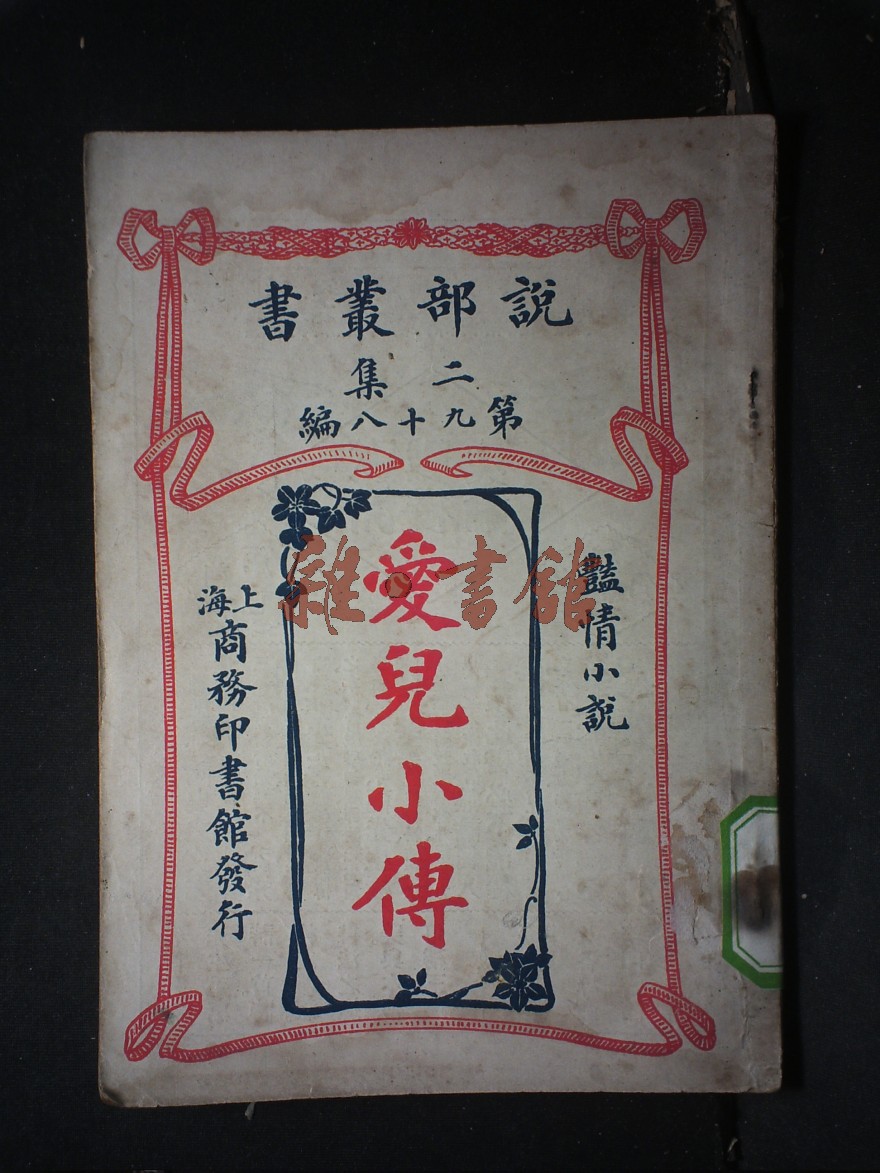 說部叢書
二集
第九十八編
豔情小說
愛兒小傳
上海
商務印書館發行
雜書館